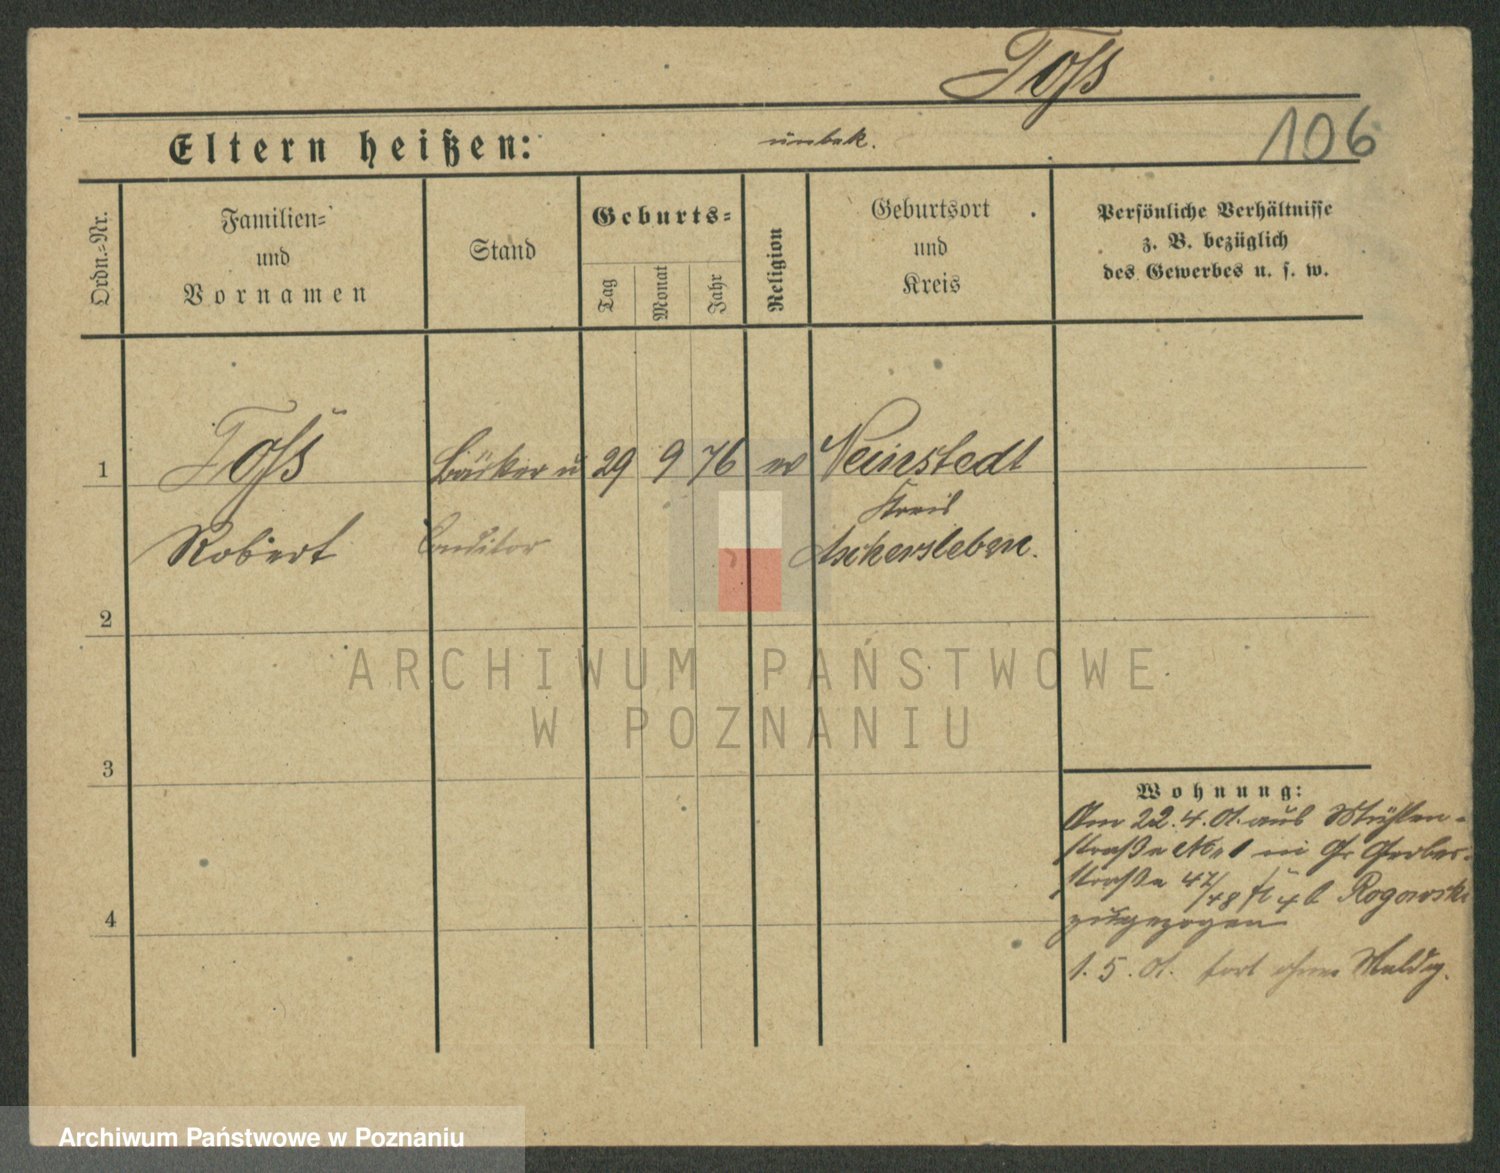 Toss
106
Eltern heißen: unbek.
Ordn.-Nr.
Familien-
und
Vornamen
Stand
Geburts-
Tag
Monat
Jahr
Religion
Geburtsort
und
Kreis
Persönliche Verhältnisse
z. B. bezüglich
des Gewerbes u. s. w.
1 Toss Bäcker u 29 9 76 ev Neinstedt
Kreis
Robert Conditor Aschersleben.
2
3
4
ARCHIWUM PAŃSTWOWE
W POZNANIU
Wohnung:
Am 22.4.01. aus Mühlen-
straße No 1 in Gr Gerber-
straße 47/48 4 b Rogowski
zugezogen
1.5.01. fort ohne Meldg.
Archiwum Państwowe w Poznaniu